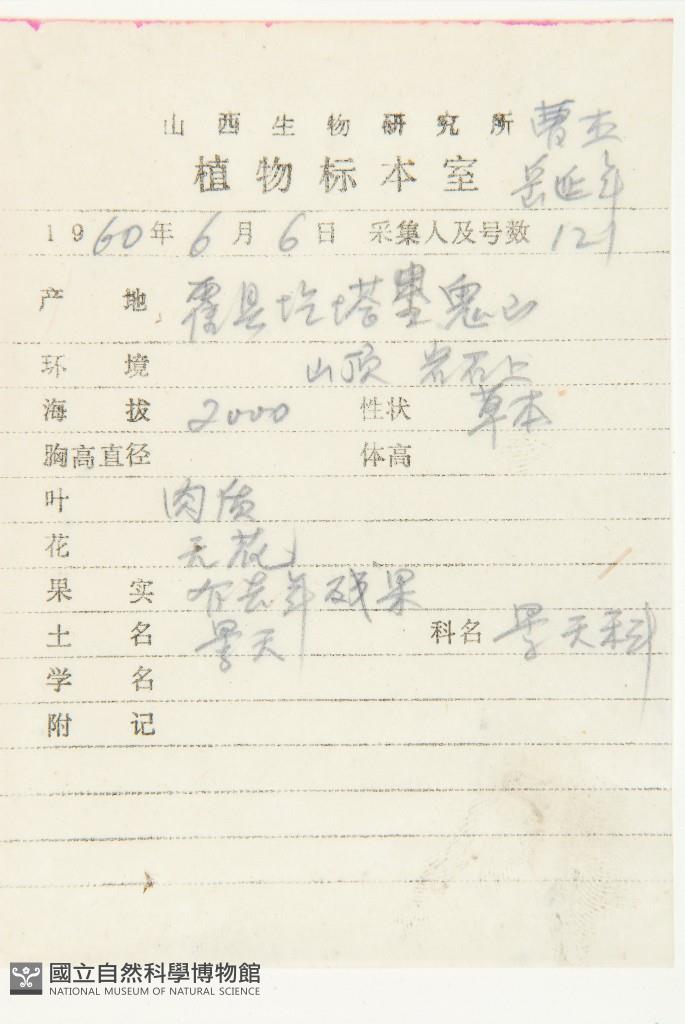 山西生物研究所 曹杰
植物标本室 岳延年
1960年6月6日 采集人及号数 121
产地 霍县圪塔垒鬼山
环境 山顶 岩石上
海拔 2000 性状 草本
胸高直径 体高
叶 肉质
花 无花
果实 有去年残果
土名 景天 科名 景天科
学名
附记
國立自然科學博物館
NATIONAL MUSEUM OF NATURAL SCIENCE